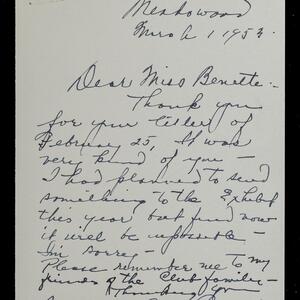 Meadowood
March 1, 1953.
Dear Miss Benette:-
Thank you
for your letter of
February 25, It was
very kind of you -
I had planned to send
something to the Exhibit
this year but find now
it will be impossible -
I'm sorry -
Please remember me to my
friends of the Club family -
Thanking